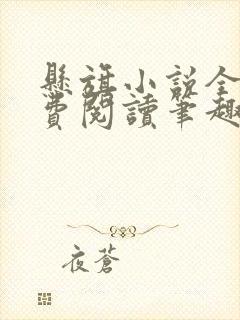 懸旗小說全
費閱讀筆趣
夜蒼